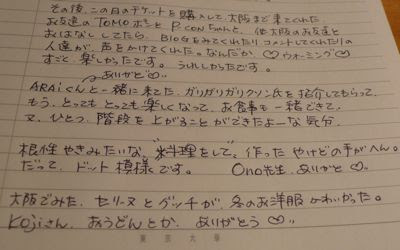 その後、この日のチケットを購入して、大阪まで来てくれた
お友達のTOMOボンと P-CONちゃんと、他 大阪のお友達と
おはなししてたら、BLOGをみてくれたり、コメントしてくれたりの
人達が、声をかけてくれた。なんだか ♡ウォーミング♡
すごく 楽しかったです。うれしかったです。
ありがと♡
ARAiくんと一緒に来てた、ガリガリガリクソン氏を紹介してもらって、
もう、とっても とっても 楽しくなって、お食事も一緒できて、
又、ひとつ、階段を上がることができたよーな気分。
根性やきみたいな、"料理をして"、作った やけどの手がへん。
だって、ドット模様です。 Ono先生、ありがと♡
大阪でみた、セリーヌとグッチが、冬のお洋服 かわいかった。
Kojiさん、おうどんとか、ありがとう♡
東京大學